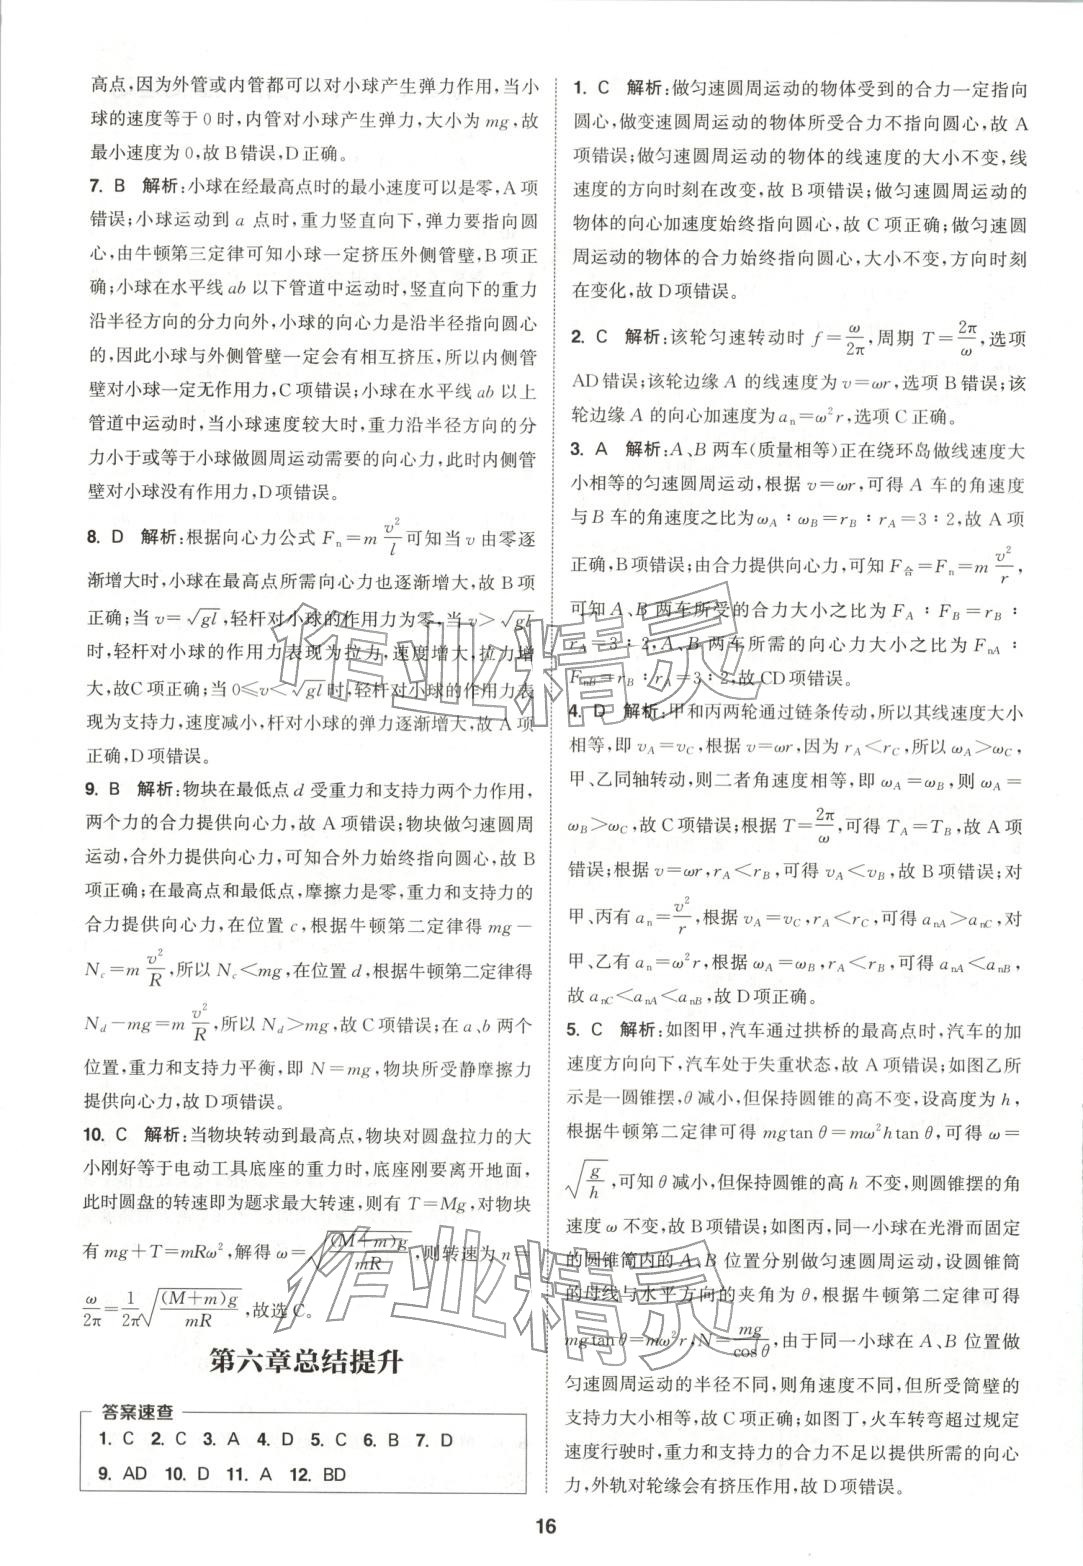 高点,因为外管或内管都可以对小球产生弹力作用,当小
球的速度等于0时,内管对小球产生弹力,大小为 mg,故
最小速度为0,故B错误,D正确。
7. B 解析:小球在经最高点时的最小速度可以是零,A项
错误;小球运动到 a 点时,重力竖直向下,弹力要指向圆
心,由牛顿第三定律可知小球一定挤压外侧管壁,B项正
确;小球在水平线 ab 以下管道中运动时,竖直向下的重力
沿半径方向的分力向外,小球的向心力是沿半径指向圆心
的,因此小球与外侧管壁一定会有相互挤压,所以内侧管
壁对小球一定无作用力,C项错误;小球在水平线 ab 以上
管道中运动时,当小球速度较大时,重力沿半径方向的分
力小于或等于小球做圆周运动需要的向心力,此时内侧管
壁对小球没有作用力,D项错误。
8. D 解析:根据向心力公式 Fₙ=m v²/l 可知当 v 由零逐
渐增大时,小球在最高点所需向心力也逐渐增大,故B项
正确;当 v=√gl,轻杆对小球的作用力为零,当 v>√gl
时,轻杆对小球的作用力表现为拉力,速度增大,拉力增
大,故C项正确;当 0≤v<√gl时,轻杆对小球的作用力表
现为支持力,速度减小,杆对小球的弹力逐渐增大,故A项
正确,D项错误。
9. B 解析:物块在最低点 d 受重力和支持力两个力作用,
两个力的合力提供向心力,故A项错误;物块做匀速圆周
运动,合外力提供向心力,可知合外力始终指向圆心,故B
项正确;在最高点和最低点,摩擦力是零,重力和支持力的
合力提供向心力,在位置 c,根据牛顿第二定律得 mg-
N_c=m v²/R,所以 N_c<mg,在位置 d,根据牛顿第二定律得
N_d-mg=m v²/R,所以 N_d>mg,故C项错误;在 a、b 两个
位置,重力和支持力平衡,即 N=mg,物块所受静摩擦力
提供向心力,故D项错误。
10. C 解析:当物块转动到最高点,物块对圆盘拉力的大
小刚好等于电动工具底座的重力时,底座刚要离开地面,
此时圆盘的转速即为题求最大转速,则有 T=Mg,对物块
有 mg+T=mRω²,解得 ω=√((M+m)g/mR),则转速为 n=
ω/2π=1/2π √((M+m)g/mR),故选C。
第六章总结提升
答案速查
1. C 2. C 3. A 4. D 5. C 6. B 7. D
9. AD 10. D 11. A 12. BD
1. C 解析:做匀速圆周运动的物体受到的合力一定指向
圆心,做变速圆周运动的物体所受合力不指向圆心,故A
项错误;做匀速圆周运动的物体的线速度的大小不变,线
速度的方向时刻在改变,故B项错误;做匀速圆周运动的
物体的向心加速度始终指向圆心,故C项正确;做匀速圆
周运动的物体的合力始终指向圆心,大小不变,方向时刻
在变化,故D项错误。
2. C 解析:该轮匀速转动时 f=ω/2π,周期 T=2π/ω,选项
AD错误;该轮边缘 A 的线速度为 v=ωr,选项B错误;该
轮边缘 A 的向心加速度为 aₙ=ω²r,选项C正确。
3. A 解析:A、B 两车(质量相等)正在绕环岛做线速度大
小相等的匀速圆周运动,根据 v=ωr,可得 A 车的角速度
与 B 车的角速度之比为 ω_A∶ω_B=r_B∶r_A=3∶2,故A项
正确,B项错误;由合力提供向心力,可知 F合=Fₙ=m v²/r,
可知 A、B 两车所受的合力大小之比为 F_A∶F_B=r_B∶
r_A=3∶2,A、B 两车所需的向心力大小之比为 F_nA∶
F_nB=r_B∶r_A=3∶2,故CD项错误。
4. D 解析:甲和丙两轮通过链条传动,所以其线速度大小
相等,即 v_A=v_C,根据 v=ωr,因为 r_A<r_C,所以 ω_A>ω_C,
甲、乙同轴转动,则二者角速度相等,即 ω_A=ω_B,则 ω_A=
ω_B>ω_C,故C项错误;根据 T=2π/ω,可得 T_A=T_B,故A项
错误;根据 v=ωr,r_A<r_B,可得 v_A<v_B,故B项错误;对
甲、丙有 aₙ=v²/r,根据 v_A=v_C,r_A<r_C,可得 a_nA>a_nC,对
甲、乙有 aₙ=ω²r,根据 ω_A=ω_B,r_A<r_B,可得 a_nA<a_nB,
故 a_nC<a_nA<a_nB,故D项正确。
5. C 解析:如图甲,汽车通过拱桥的最高点时,汽车的加
速度方向向下,汽车处于失重状态,故A项错误;如图乙所
示是一圆锥摆,θ 减小,但保持圆锥的高不变,设高度为 h,
根据牛顿第二定律可得 mgtan θ=mω²htan θ,可得 ω=
√(g/h),可知 θ 减小,但保持圆锥的高 h 不变,则圆锥摆的角
速度 ω 不变,故B项错误;如图丙,同一小球在光滑而固定
的圆锥筒内的 A、B 位置分别做匀速圆周运动,设圆锥筒
的母线与水平方向的夹角为 θ,根据牛顿第二定律可得
mgtan θ=mω²r,N=mg/cos θ,由于同一小球在 A、B 位置做
匀速圆周运动的半径不同,则角速度不同,但所受筒壁的
支持力大小相等,故C项正确;如图丁,火车转弯超过规定
速度行驶时,重力和支持力的合力不足以提供所需的向心
力,外轨对轮缘会有挤压作用,故D项错误。
16
作业精灵
作业精灵